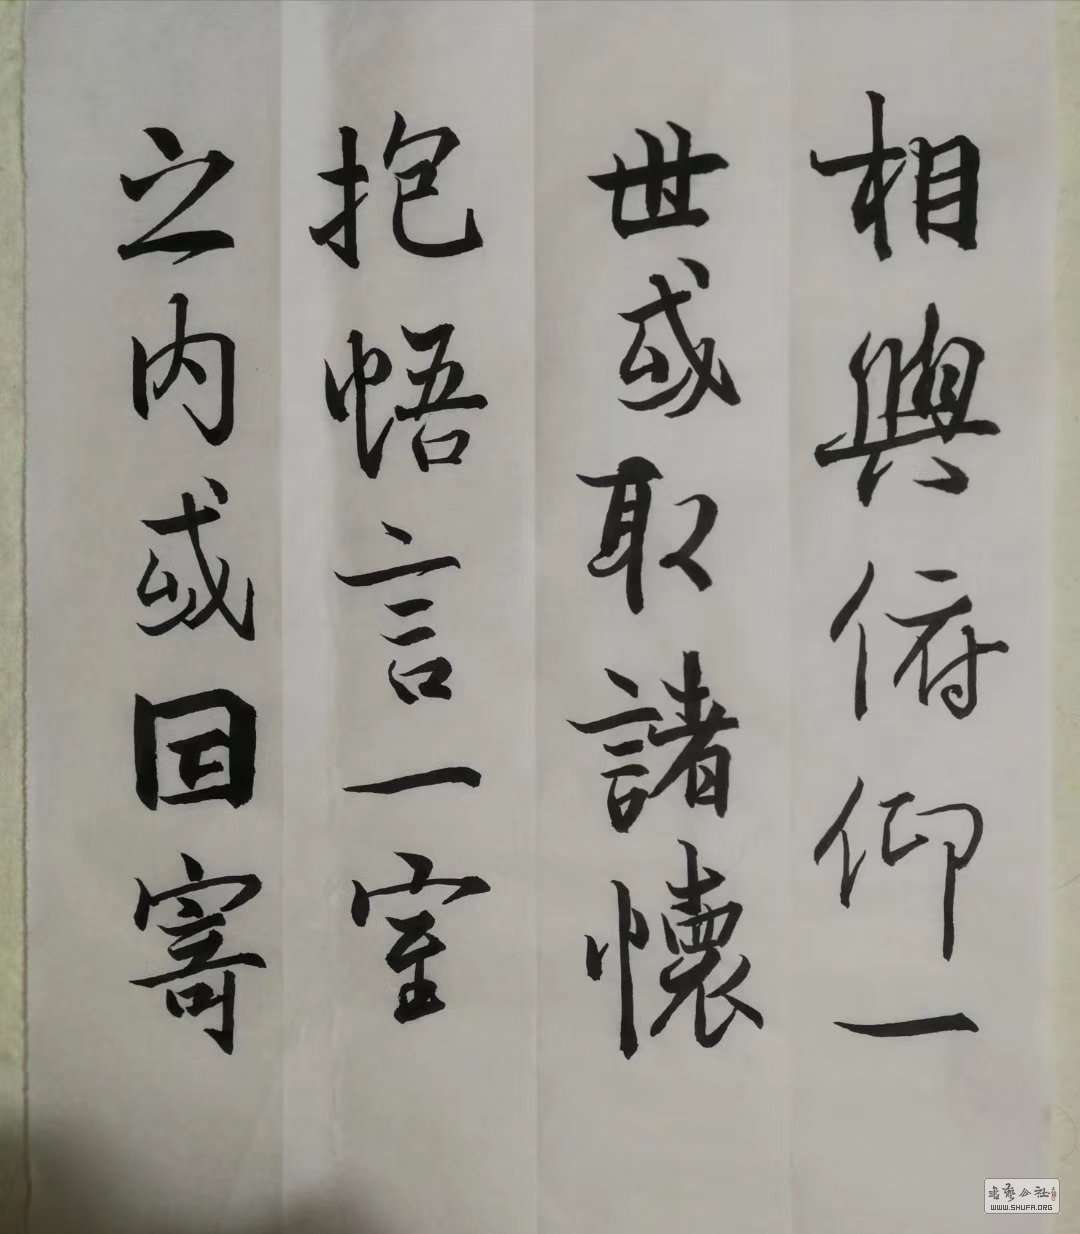 相與俯仰一
世或取諸懷
抱悟言一室
之内或因寄
WWW.SHUFA.ORG